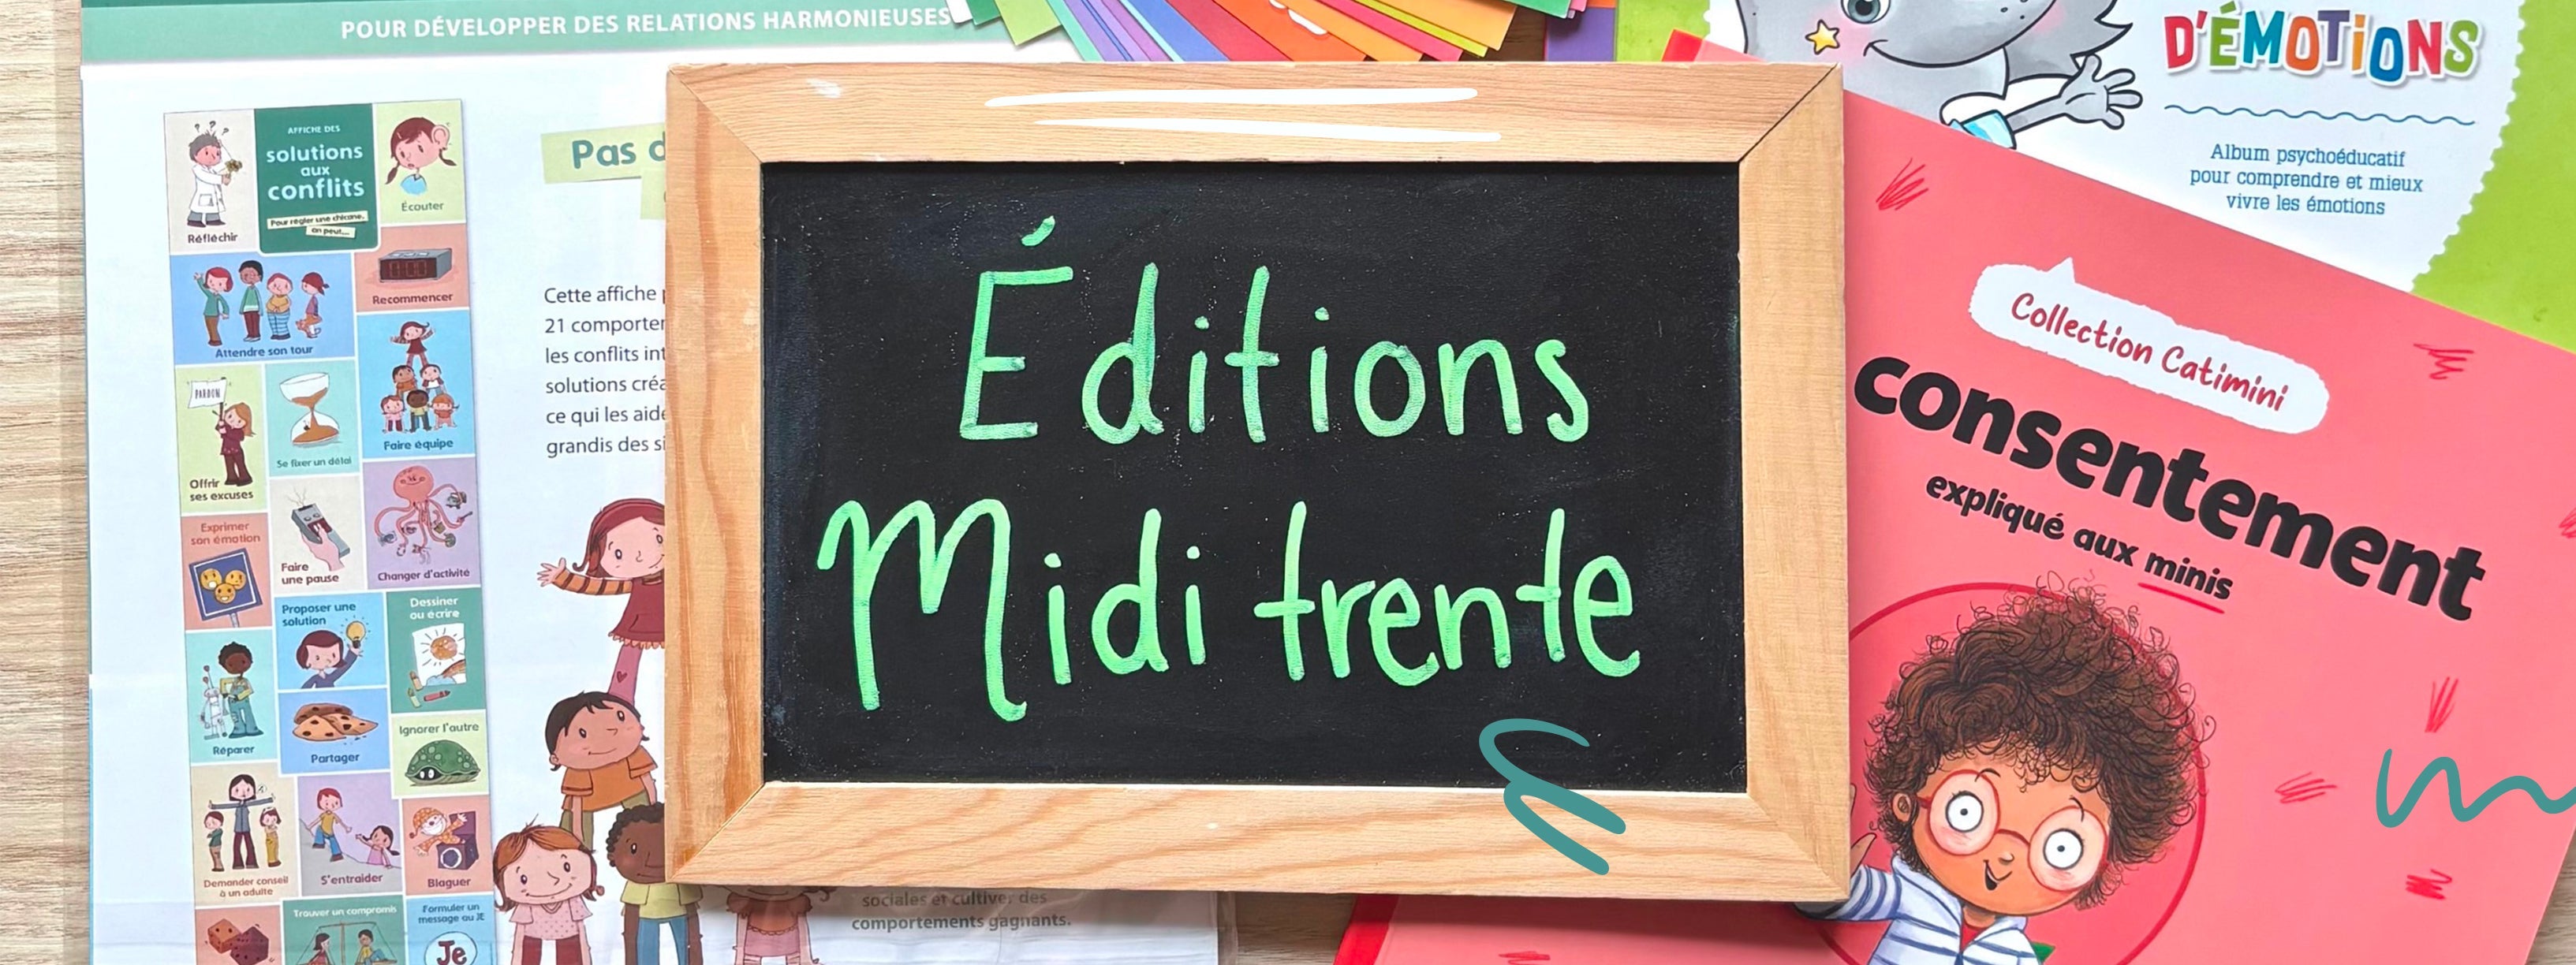 POUR DÉVELOPPER DES RELATIONS HARMONIEUSES
AFFICHE DES
solutions
aux
conflits
Pour régler une chicane,
on peut...
Réfléchir
Écouter
Attendre son tour
Recommencer
PARDON
Offrir
ses excuses
Se fixer un délai
Faire équipe
Exprimer
son émotion
Faire
une pause
Changer d'activité
Proposer une
solution
Dessiner
ou écrire
Réparer
Partager
Ignorer l'autre
Demander conseil
à un adulte
S'entraider
Blaguer
Trouver un compromis
Formuler un
message au JE
Je
Pas d
Cette affiche
21 comporter
les conflits int
solutions créa
ce qui les aide
grandis des si
sociales et cultiver des
comportements gagnants.
Éditions
Midi trente
D'ÉMOTIONS
Album psychoéducatif
pour comprendre et mieux
vivre les émotions
Collection Catimini
consentement
expliqué aux minis